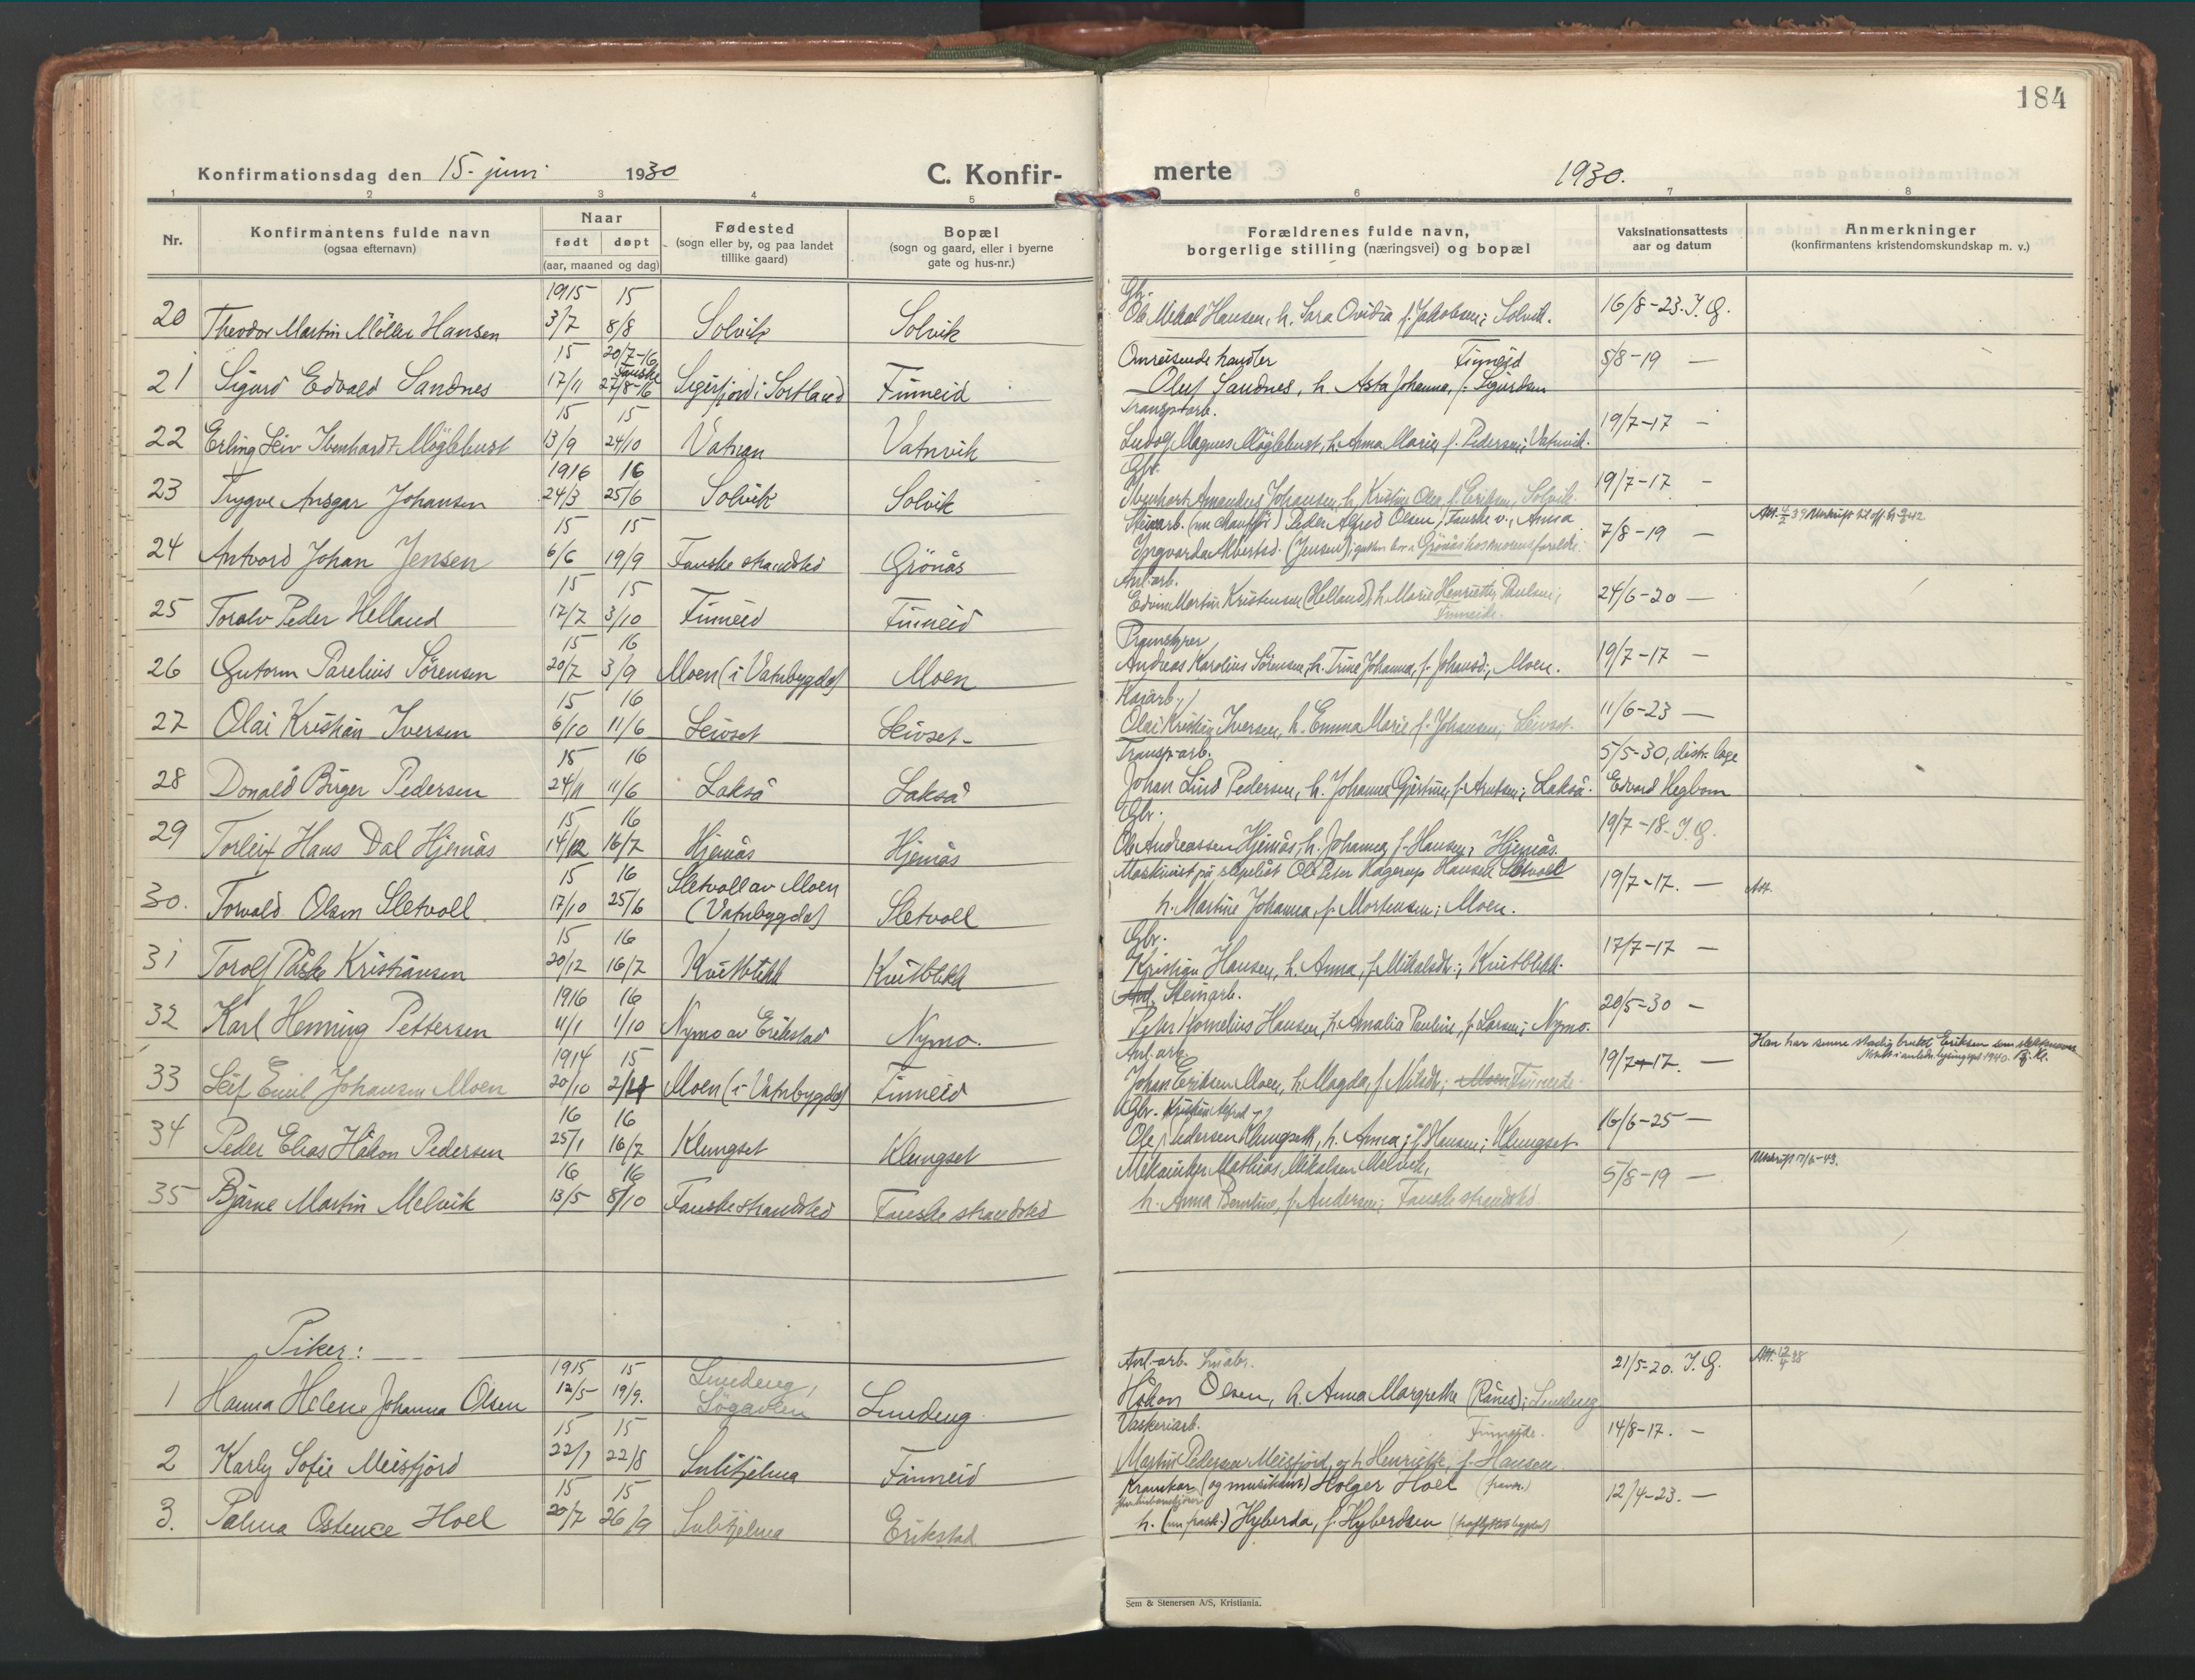 184
Konfirmationsdag den 15. juni 1930
C. Konfir-
merte
1930.
1 2 3 4 5 6 7 8
Nr.
Konfirmantens fulde navn
(ogsaa efternavn)
Naar
født døpt
(aar, maaned og dag)
Fødested
(sogn eller by, og paa landet
tillike gaard)
Bopæl
(sogn og gaard, eller i byerne
gate og hus-nr.)
Forældrenes fulde navn,
borgerlige stilling (næringsvei) og bopæl
Vaksinationsattests
aar og datum
Anmerkninger
(konfirmantens kristendomskundskap m. v.)
1915 15 Gbr.
20 Theodor Martin Möller Hansen 3/7 8/8 Solvik Solvik Ole Mikal Hansen, h. Sara Ovidia f. Jakobsen; Solvik. 16/8-23. I. G.
15 20/7-16 Omreisende handler Finneid
21 Sigurd Edvald Sandnes 17/11 Fauske 27/8-16 Sigerfjord i Sortland Finneid Oluf Sandnes, h. Asta Johanna, f. Sigurdsen 5/8-19 —
15 15 Transp.arb.
22 Erling Leiv Ibenhardt Möglehust 13/9 24/10 Vatnan Vatnvik Ludolf Magnus Möglehust, h. Anna Marie, f. Pedersen; Vatnvik. 19/7-17 —
1916 16 Gbr.
23 Trygve Ansgar Johansen 24/3 25/6 Solvik Solvik Ibenhart Amandus Johansen, h. Kristine Olea f. Eriksen, Solvik. 19/7-17 —
15 15 Steinarb. (nu chauffør) Peder Alfred Olsen, Fauske v., Anna
24 Antvord Johan Jensen 6/6 19/9 Fauske strandsted Grönås Ingvarda Albertsd. (Jensen); gutten bor i Grönås hos morens foreldre. 7/8-19 —
15 15 Anl.arb.
25 Toralv Peder Helland 17/7 3/10 Finneid Finneid Edvin Martin Kristensen (Helland) h. Marie Henriette Paulsen; Finneide. 24/6-20 —
15 16
26 Gutorm Parelius Sörensen 20/7 3/9 Moen (i Vatnbygda) Moen Andreas Karolius Sörensen, h. Trine Johanna, f. Johansd.; Moen. 19/7-17 —
15 16 Kaiarb.
27 Olai Kristian Iversen 6/10 11/6 Leivset Leivset Olai Kristian Iversen, h. Emma Marie f. Johansen; Leivset. 11/6-23 —
15 16 Transp-arb. 5/5-30, distr. lege
28 Donald Birger Pedersen 24/11 11/6 Lakså Lakså Johan Lind Pedersen, h. Johanna Gjertine, f. Arntsen; Lakså. Edvard Hegbom
15 16 Gbr.
29 Torleif Hans Dal Hjemås 14/12 16/7 Hjemås Hjemås Ole Andreassen Hjemås, h. Johanna f. Hansen, Hjemås. 19/7-18. I. G.
15 16 Sletvoll av Moen Maskinist på slepebåt Ole Peter Hagerup Hansen Sletvoll
30. Torvald Olsen Sletvoll 17/10 25/6 (Vatnbygda) Sletvoll h. Martine Johanna, f. Mortensen; Moen. 19/7-17. — Att.
15 16 Gbr.
31 Torolf Påske Kristiansen 20/12 16/7 Kvitblikk Kvitblikk Kristian Hansen, h. Anna, f. Mikalsdr.; Kvitblikk. 17/7-17 —
1916 16 Steinarb.
32 Karl Henning Pettersen 11/1 1/10 Nymo av Erikstad Nymo. Peter Kornelius Hansen, h. Amalia Pauline, f. Larsen; Nymo. 20/5-30 —
1914 15 Anl.arb. Han har senere stadig brukt Eriksen som slektsnavn
33 Leif Emil Johansen Moen 20/10 Moen (i Vatnbygda) Finneid Johan Eriksen Moen, h. Magda, f. Nilsdr; Moen Finneide. 19/7-17. —
16 16 Gbr. Kristian Alfred
34 Peder Elias Håkon Pedersen 25/1 16/7 Klungset Klungset Ole Pedersen Klungseth, h. Anna; f. Hansen; Klungset 16/6-25 —
16 16 Mekaniker Mathias Mikalsen Melvik, Utskrift 17/6-43.
35 Bjarne Martin Melvik 13/5 8/10 Fauske strandsted Fauske strandsted h. Anna Berntine, f. Andersen; Fauske strandsted. 5/8-19 —
Piker:
1915 15 Lundeng, Anl-arb. Småbr.
1 Hanna Helene Johanna Olsen 12/5 19/9. Lögavlen Lundeng Håkon Olsen, h. Anna Margrethe (Rånes); Lundeng 21/5-20. I. G.
15 15 Vaskeriarb. Finneide.
2 Karly Sofie Meisfjord 22/7 22/8 Sulitjelma Finneid Martin Pedersen Meisfjord, og h. Henriette, f. Hansen. 14/8-17. —
15 15 Krankar (og musikant) Holger Hoel
3. Palma Ostence Hoel 20/7 26/9 Sulitjelma Erikstad h. Hyberda, f. Hyberdsen 12/4-23. —
Sem & Stenersen A/S, Kristiania.